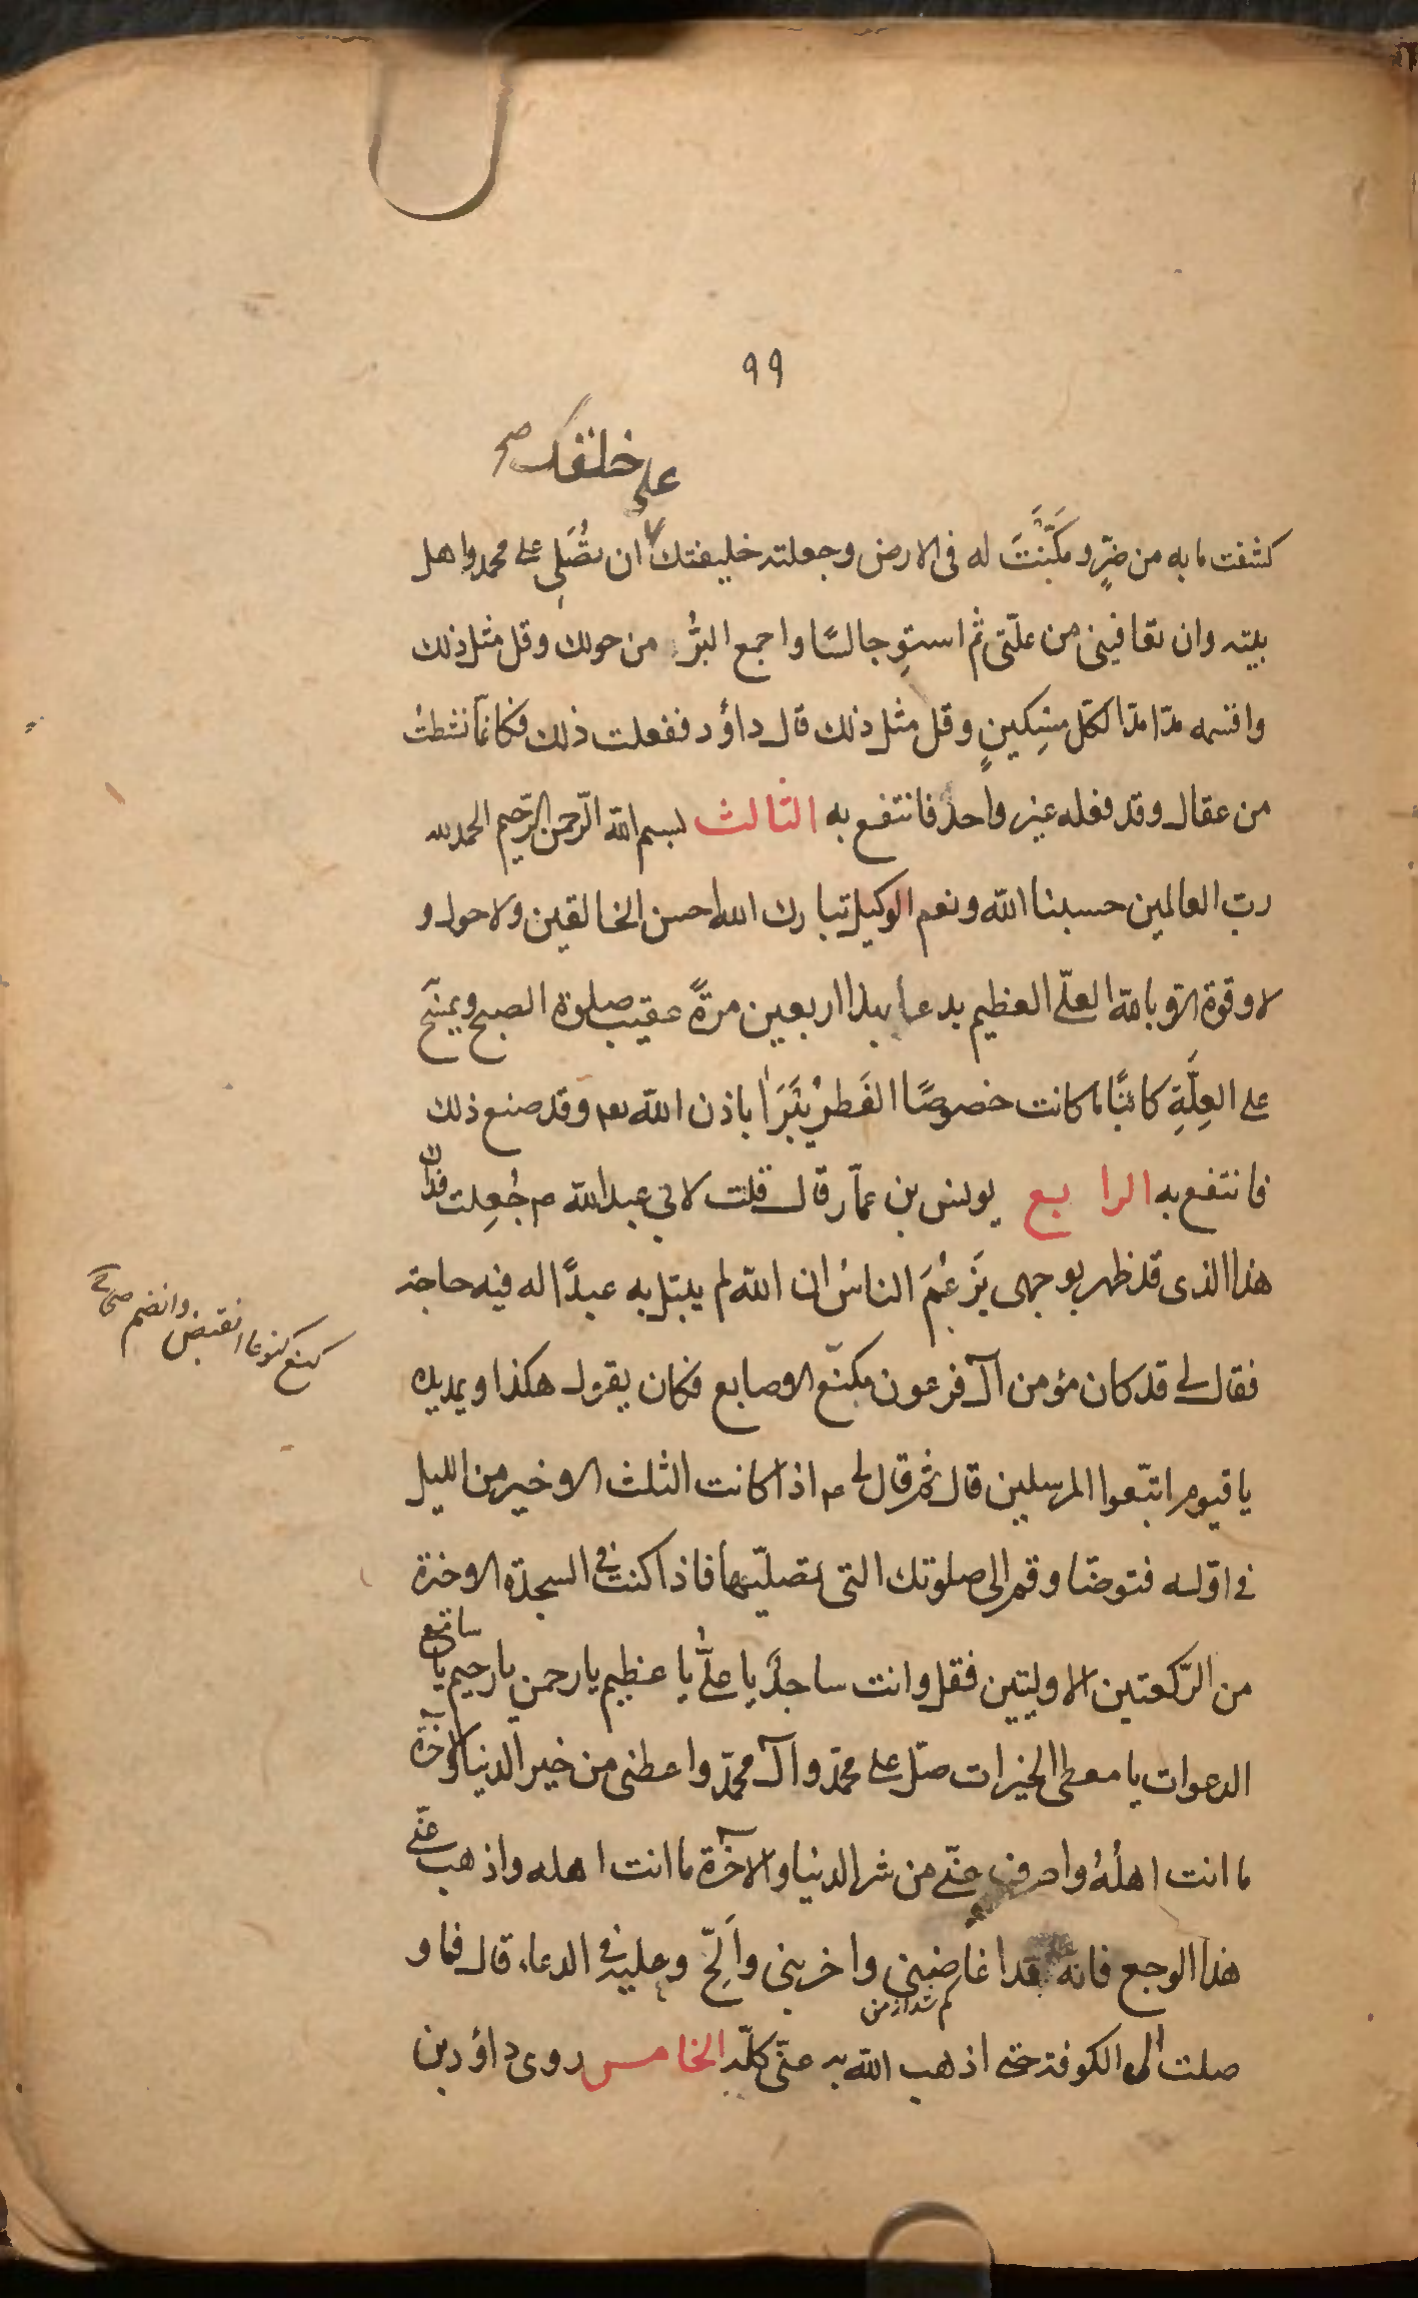 ٩٩
على خلقك صح
كشفت ما به من ضرٍّ و مَكَّنْتَ له فى الارض وجعلته خليفتك ان تُصَلى على محمد واهل
بيته وان تعافينى من علّتى ثم استوِ جالسًا واجمع البُرَّ من حولك وقل مثل ذلك
واقسمه مدّا مدّا لكل مِسكينٍ وقل مثل ذلك قال داؤد ففعلت ذلك فكانّما نشطتُ
من عقال وقد فعله غير واحد فانتفع به الثالث بسم الله الرّحمن الرّحيم الحمد لله
ربّ العالمين حسبنا الله ونعم الوكيل تبارك الله احسن الخالقين ولا حول و
لا قوة الا بالله العلّى العظيم يدعا بهذا اربعين مرةً عقيب صلوة الصبح ويمسّح
على العِلَّةِ كائنًا ما كانت خصوصًا الفَطر يَبْرَا باذن الله تعم وقد صنع ذلك
فانتفع به الرابع يونس بن عمّار قال قلت لابى عبد الله ع جُعِلت فداك
هذا الذى قد ظهر بوجهى يَزعُمَ الناسُ ان الله لم يبتل به عبدًا له فيه حاجة
فقال لى قد كان مؤمن آل فرعون مكنّع الاصابع فكان يقول هكذا ويمد يده
كنع كنوعا انقبض وانضم صحاح
يا قوم اتبّعوا المرسلين قال ثم قال لى ع اذا كانت الثلث الاخير من الليل
فى اوّله فتوضّا وقم الى صلوتك التى تصليّها فاذا كنت فى السجدة الاخرة
من الرّكعتين الاوليتين فقل وانت ساجدٌ يا علىُّ يا عظيم يا رحمن يا رحيم يا سامع
الدعوات يا معطى الخيرات صلّ على محمّد وآل محمّد واعطنى من خير الدنيا والآخرة
ما انت اهلُهُ واصرف عنّى من شر الدنيا والآخرة ما انت اهله واذهب عنّى
هذا الوجع فانه قد اغاضنى واخزنى وَاَلِحّ وعليه فى الدعاء قال فما و
صلت الى الكوفة حتى اذهب الله به عنّى كلّه الخامس روى داؤد بن